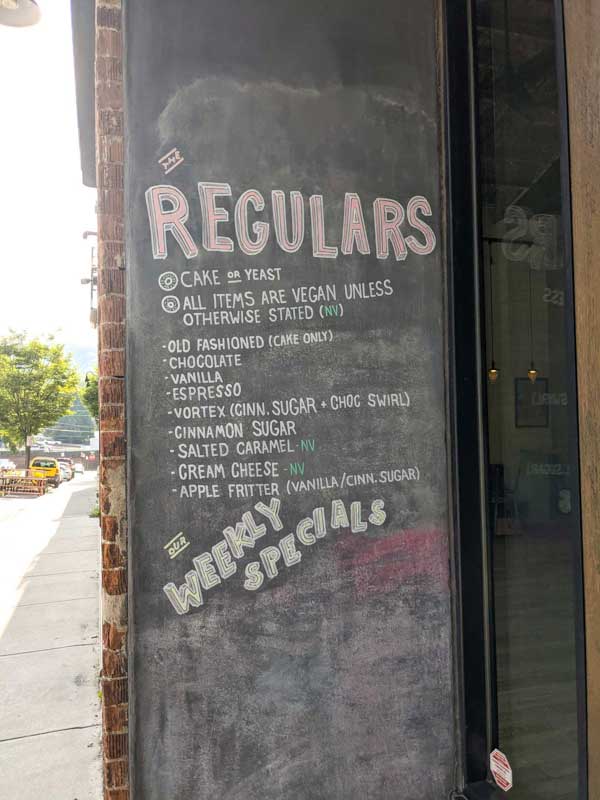 THE
REGULARS
CAKE OR YEAST
ALL ITEMS ARE VEGAN UNLESS
OTHERWISE STATED (NV)
-OLD FASHIONED (CAKE ONLY)
-CHOCOLATE
-VANILLA
-ESPRESSO
-VORTEX (CINN. SUGAR + CHOC SWIRL)
-CINNAMON SUGAR
-SALTED CARAMEL-NV
-CREAM CHEESE-NV
-APPLE FRITTER (VANILLA/CINN. SUGAR)
OUR
WEEKLY
SPECIALS